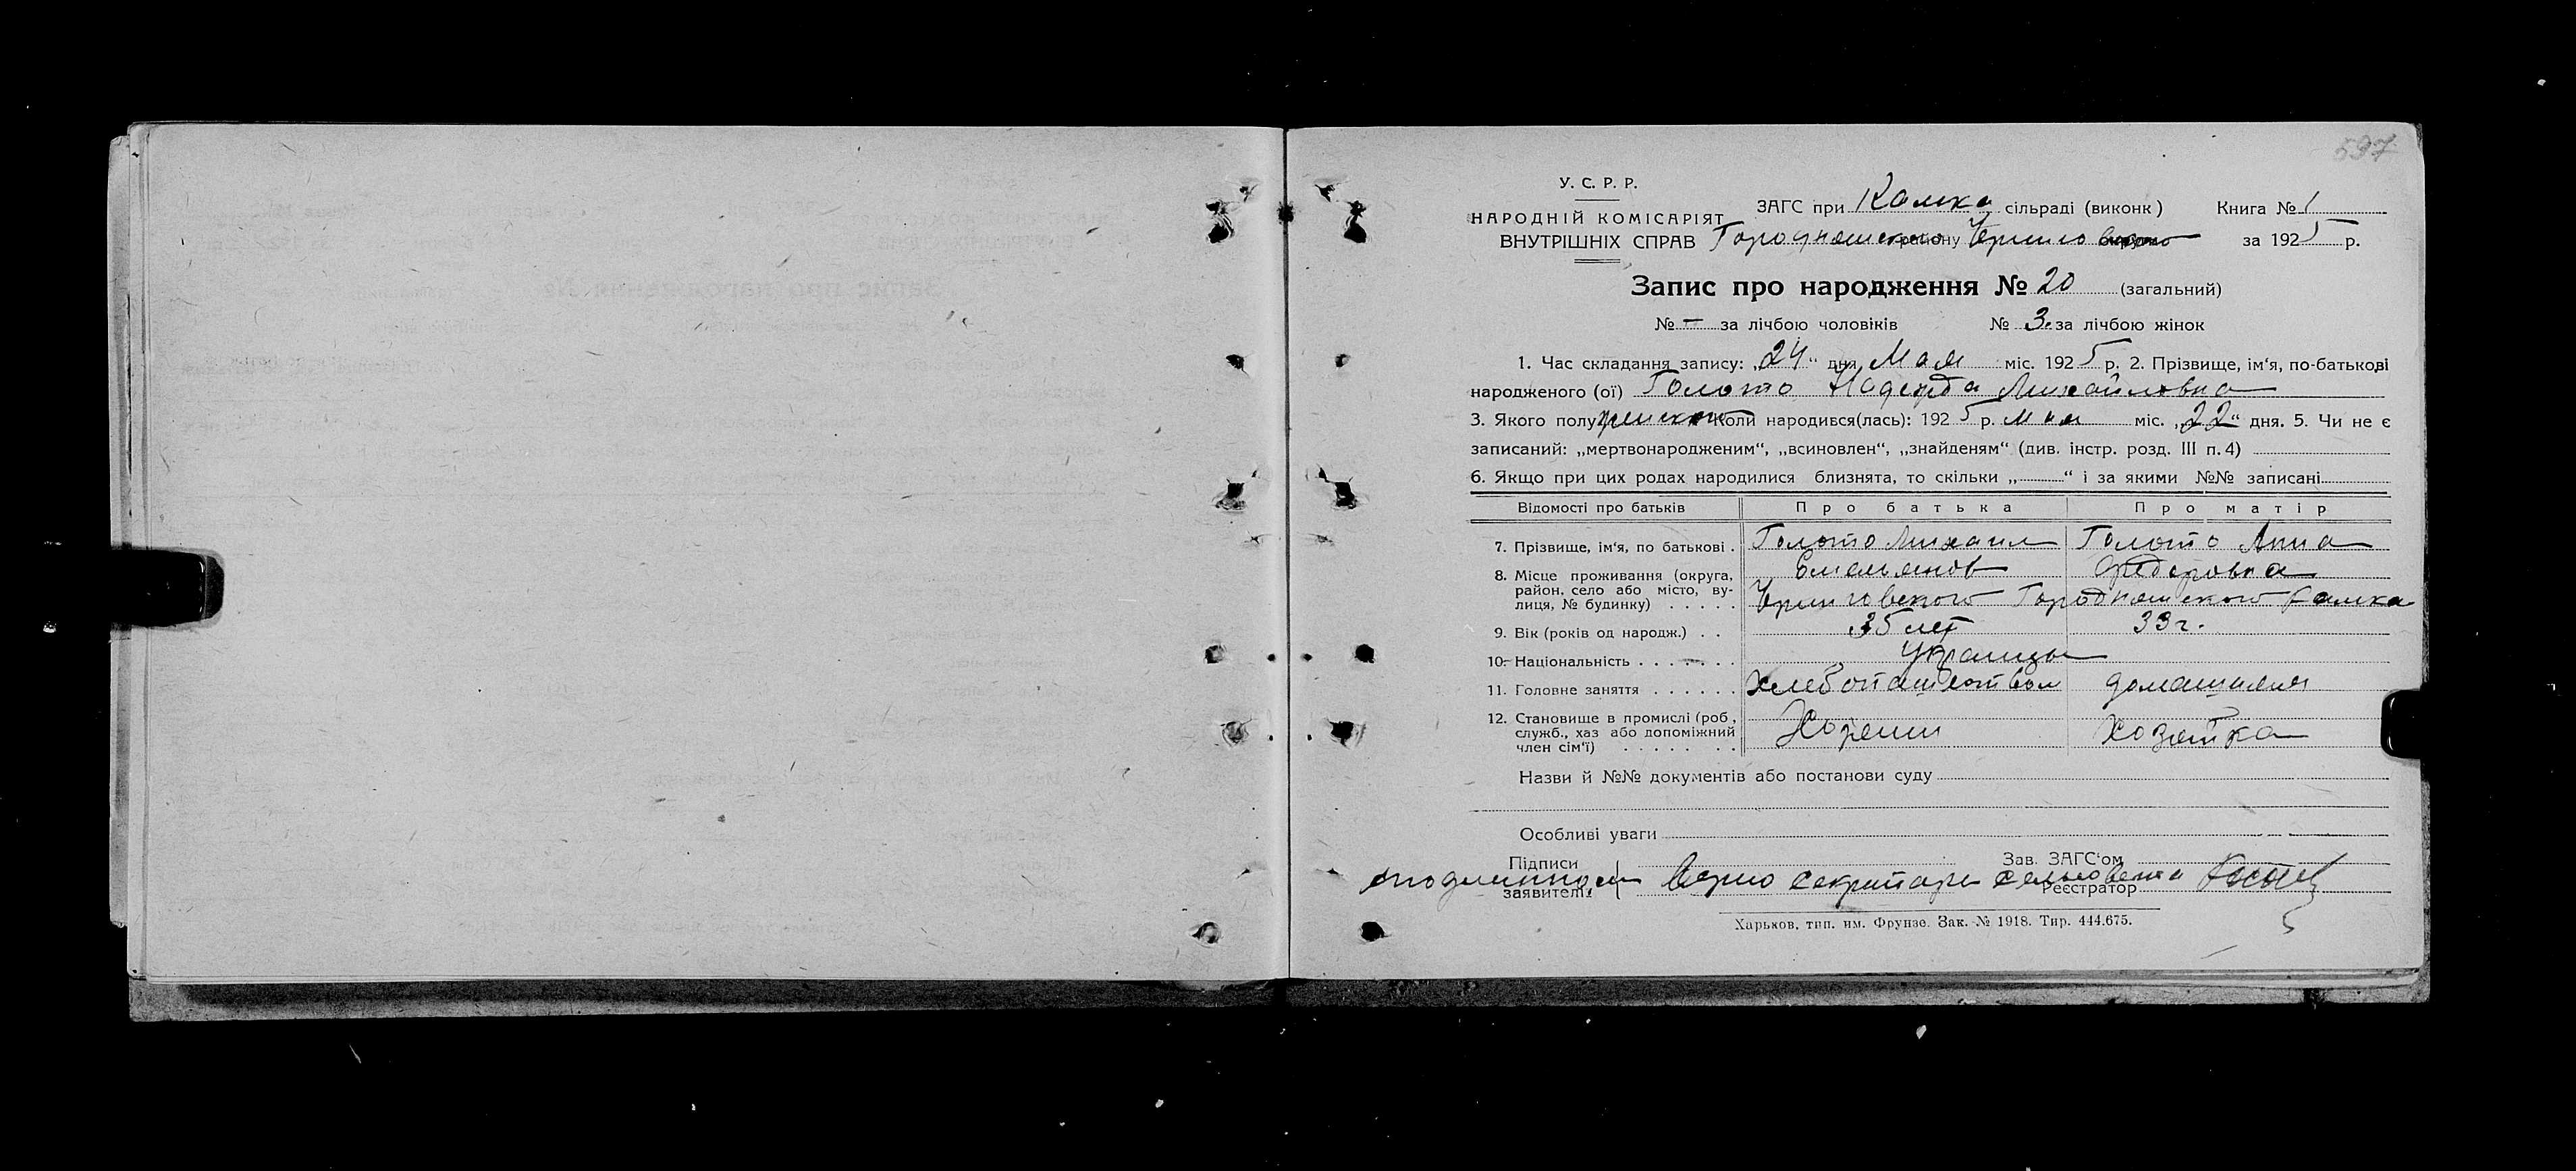 597
У. С. Р. Р.
НАРОДНІЙ КОМІСАРІЯТ
ВНУТРІШНІХ СПРАВ
ЗАГС при Камка сільраді (виконк) Книга № 1
Городнянского району Черниговского за 1925 р.
Запис про народження № 20 (загальний)
№ — за лічбою чоловіків № 3. за лічбою жінок
1. Час складання запису: „24“ дня Мая міс. 1925 р. 2. Прізвище, ім‘я, по-батькові
народженого (ої) Голота Надежда Михайловна
3. Якого полу женского Коли народився(лась): 1925 р. мая міс. „22“ дня. 5. Чи не є
записаний: „мертвонародженим“, „всиновлен“, „знайденям“ (див. інстр. розд. III п. 4)
6. Якщо при цих родах народилися близнята, то скільки „ “ і за якими №№ записані
Відомості про батьків Про батька Про матір
7. Прізвище, ім‘я, по батькові . Голота Михаил Голота Анна
Емельянов Федоровна
8. Місце проживання (округа,
район, село або місто, ву-
лиця, № будинку) . . . . . Черниговского Городнянского Камка
9. Вік (років од народж.) . . 35 лет 33 г.
10. Національність . . . . . . . Украинцы
11. Головне заняття . . . . . . Хлебопашеством домашняя
12. Становище в промислі (роб.,
служб., хаз або допоміжний
член сім‘ї) . . . . . . . Хозяин Хозяйка
Назви й №№ документів або постанови суду
Особливі уваги
Підписи
заявителів
Зав. ЗАГС‘ом
Реєстратор
подлинным верно секретарь сельсовета
Харьков, тип. им. Фрунзе. Зак. № 1918. Тир. 444.675.